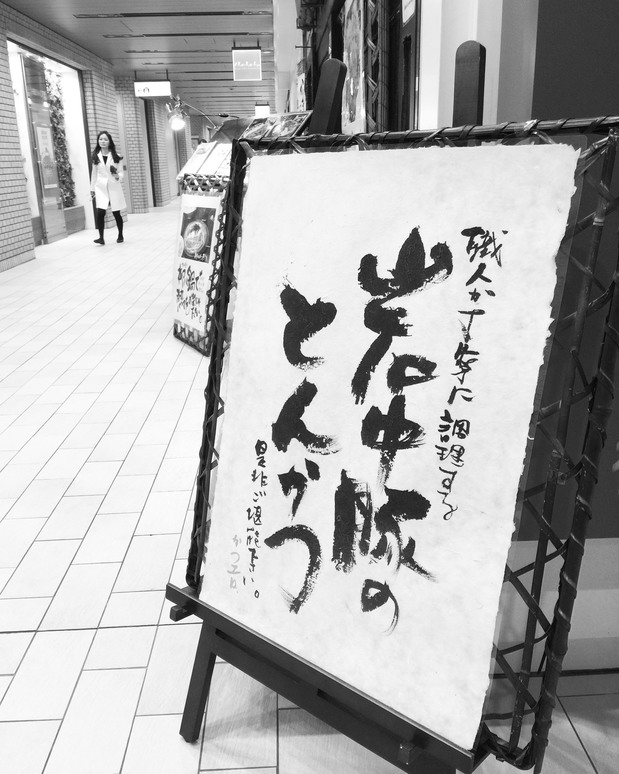 職人が丁寧に調理する
岩中豚の
とんかつ
是非ご堪能下さい。
かつ工房